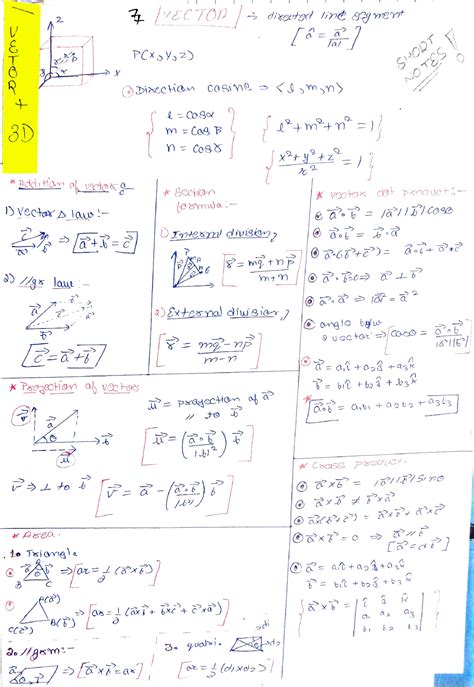 VECTOR + 3D
VECTOR → directed line segment
[ â = a⃗/|a⃗| ]
SHORT NOTES!
P(x,y,z)
Direction cosine → <l,m,n>
l = cosα
m = cosβ
n = cosγ
{ l²+m²+n² = 1 }
{ x²+y²+z²/r² = 1 }
* Addition of vectors
1) Vector Δ law:-
⇒ [a⃗+b⃗ = c⃗]
2) //gm law:-
[c⃗ = a⃗+b⃗]
* Section formula:-
1) Internal division
[r⃗ = mq⃗+np⃗/m+n]
2) External division
[r⃗ = mq⃗-np⃗/m-n]
* vector dot product:-
a⃗·b⃗ = |a⃗||b⃗|cosθ
a⃗·b⃗ = b⃗·a⃗
a⃗·(b⃗+c⃗) = a⃗·b⃗ + a⃗·c⃗
a⃗·b⃗=0 ⇒ a⃗ ⊥ b⃗
angle b/w vector ⇒ [cosθ = a⃗·b⃗/|a⃗||b⃗|]
a⃗ = a₁î + a₂ĵ + a₃k̂
b⃗ = b₁î + b₂ĵ + b₃k̂
[a⃗·b⃗ = a₁b₁ + a₂b₂ + a₃b₃]
* Projection of vectors
u⃗ = projection of a⃗ // to b⃗
[u⃗ = (a⃗·b⃗/|b|²) b⃗]
v⃗ → ⊥ to b⃗ [v⃗ = a⃗ - (a⃗·b⃗/|b|²) b⃗]
* Cross product.
a⃗×b⃗ = |a⃗||b⃗|sinθ
a⃗×b⃗ ≠ b⃗×a⃗
a⃗×(b⃗+c⃗) = a⃗×b⃗ + a⃗×c⃗
a⃗×b⃗ = 0 ⇒ a⃗ // b⃗
[a⃗ = λb⃗]
a⃗ = a₁î + a₂ĵ + a₃k̂
b⃗ = b₁î + b₂ĵ + b₃k̂
[a⃗×b⃗ = | î ĵ k̂
a₁ a₂ a₃
b₁ b₂ b₃ |
* Area.
1. Triangle
⇒ [ar = 1/2 (a⃗×b⃗)]
A(a⃗)
C(c⃗) B(b⃗) ⇒ [ar = 1/2 (a⃗×b⃗ + b⃗×c⃗ + c⃗×a⃗)]
2. //gm:-
⇒ [a⃗×b⃗ = ar]
3. quadri. d₁ d₂
[ar = 1/2 (d₁×d₂)]